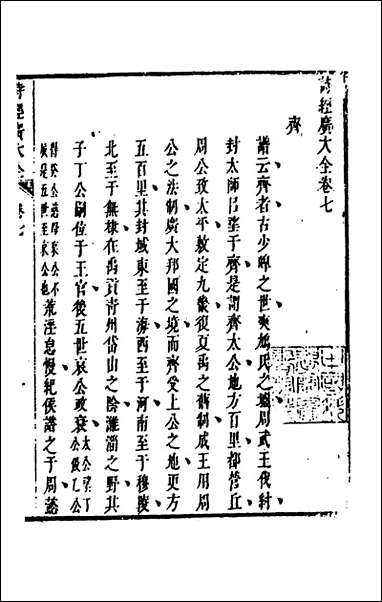 詩經廣大全卷七
齊
譜云齊者古少皥之世爽鳩氏之墟周武王伐紂
封太師呂望于齊是謂齊太公地方百里都營丘
周公致太平敷定九畿復夏禹之舊制成王用周
公之法制廣大邦國之境而齊受上公之地更方
五百里其封域東至于海西至于河南至于穆陵
北至于無棣在禹貢青州岱山之陰濰淄之野其
子丁公嗣位于王官後五世哀公政衰太公望丁公伋乙公
得癸公慈母哀公不辰是五世至哀公也荒淫怠慢紀侯譖之于周懿
詩經廣大全
卷七